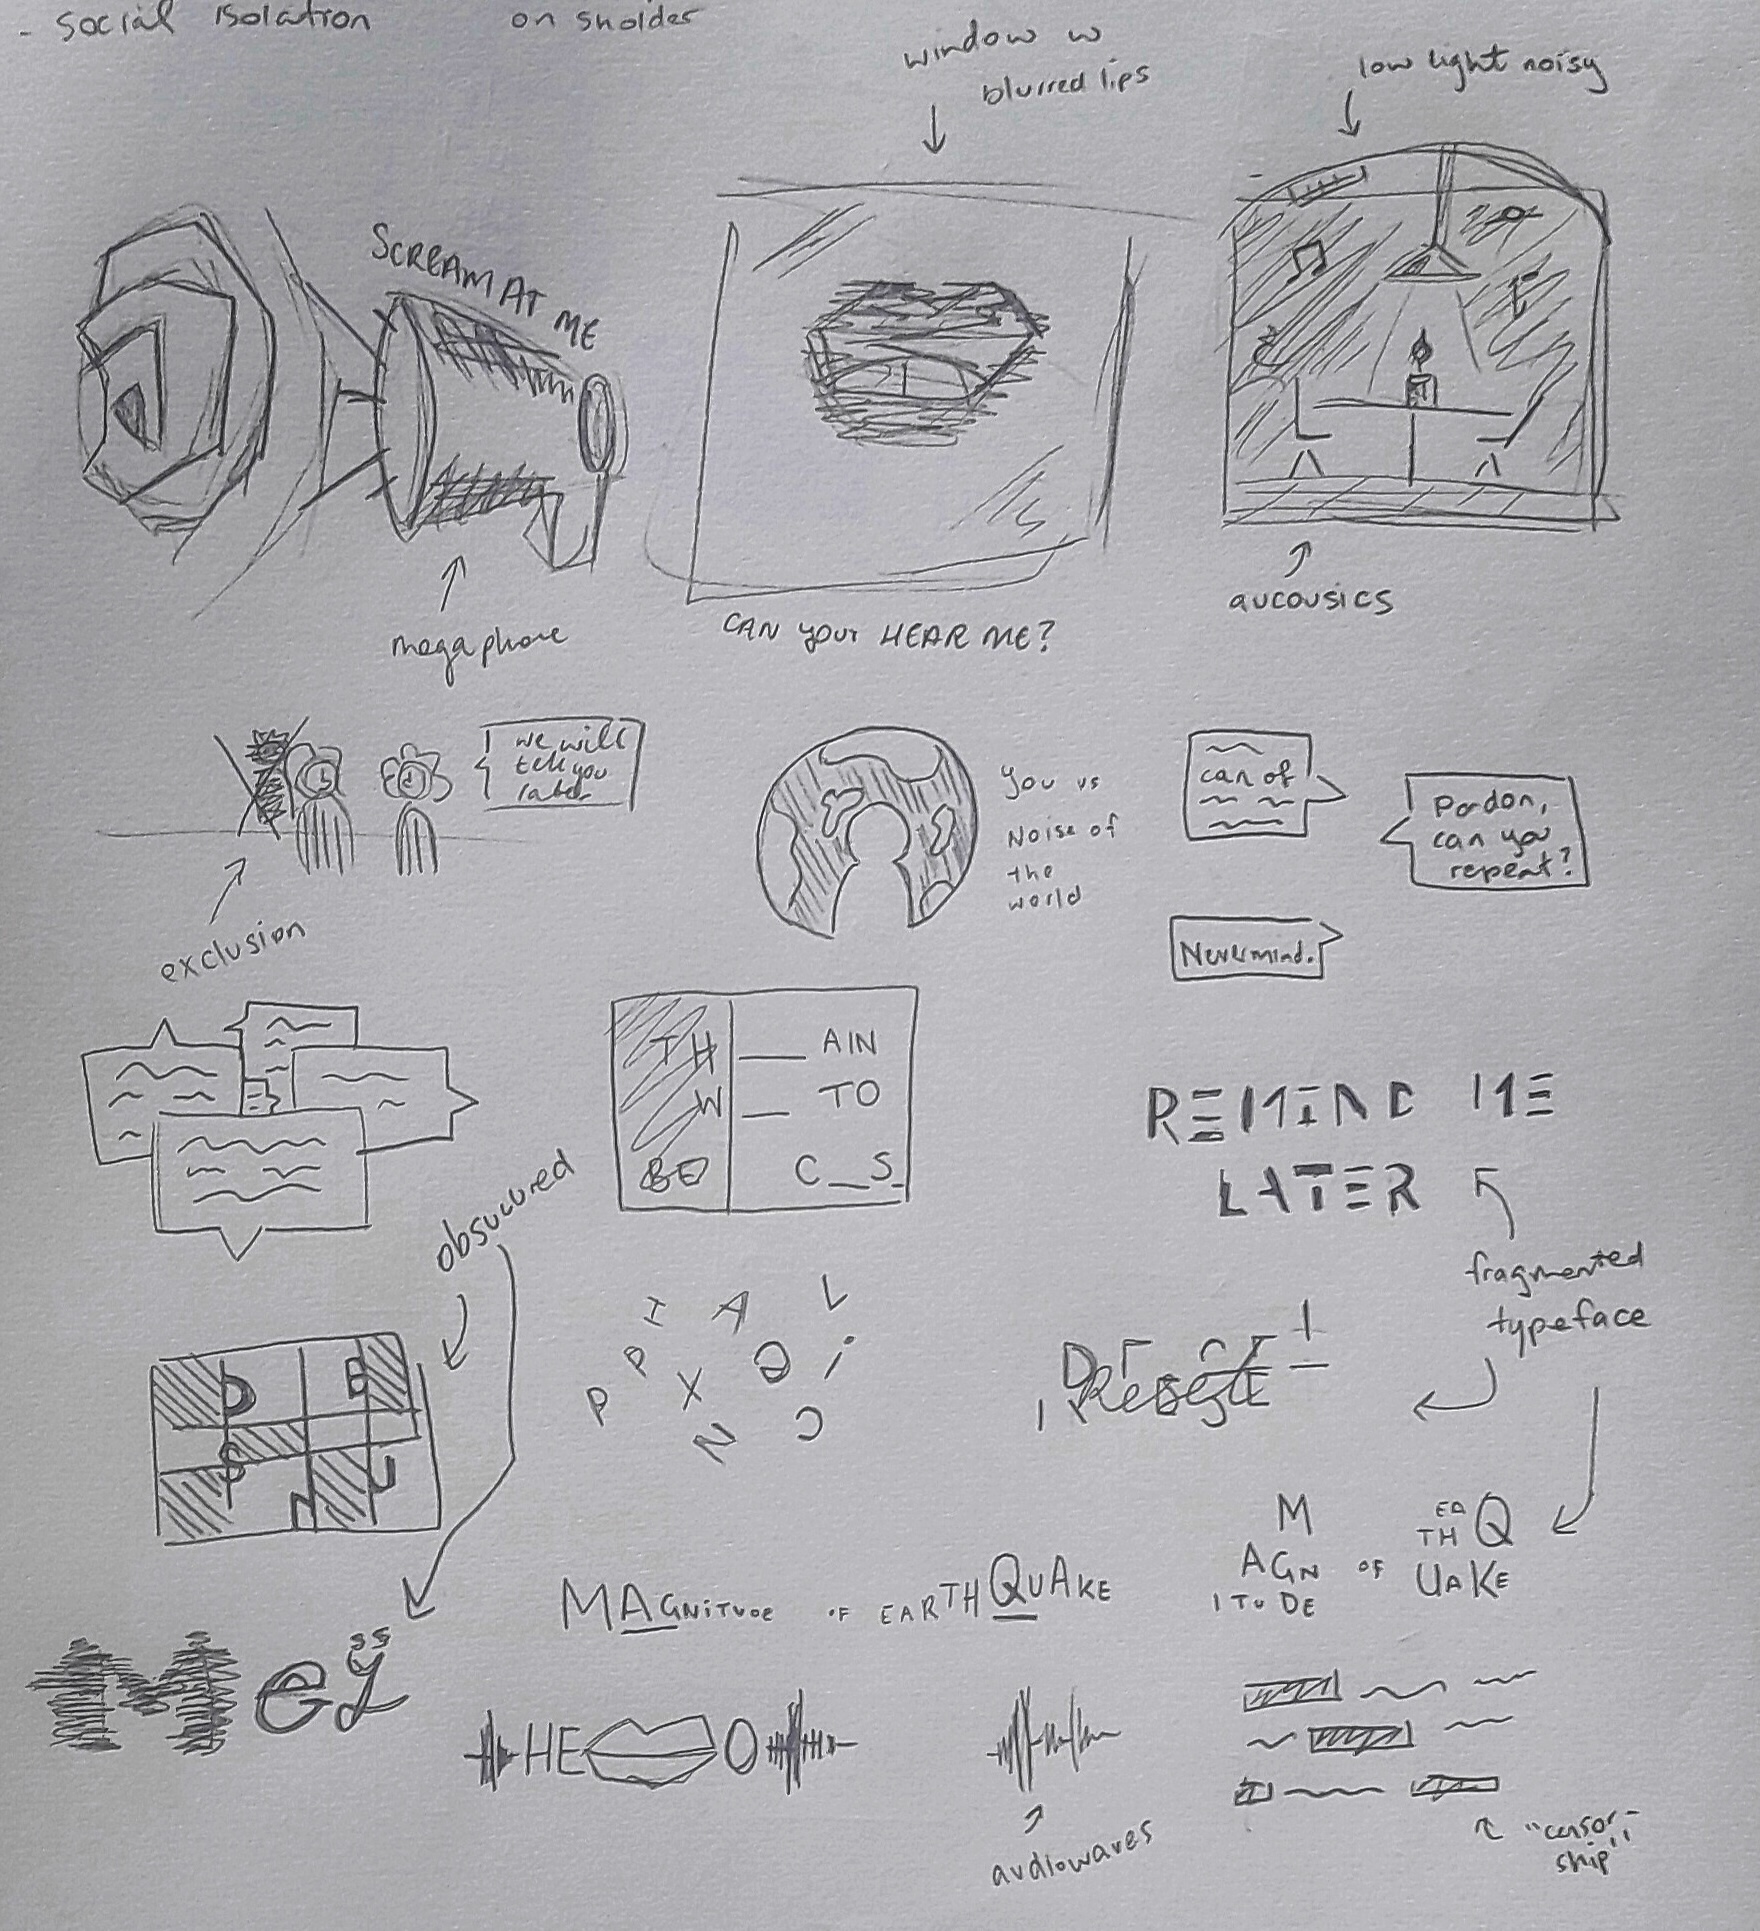 - social isolation
on sholder
window w
blurred lips
low light noisy
SCREAM AT ME
megaphone
CAN your HEAR ME?
aucousics
we will
tell you
later
exclusion
you vs
Noise of
the
world
can of
Pardon,
can you
repeat?
Nevermind.
TH __ AIN
W _ TO
BO C__S_
obsucured
REMIND ME
LATER
fragmented
typeface
I A L
P P X Q i
N C
D E
S U
n
M
AGN
ITUDE
OF
EA
THQ
UAKE
MAGNITUDE OF EARTHQUAKE
Mess
HE O
audiowaves
"censor-
ship"